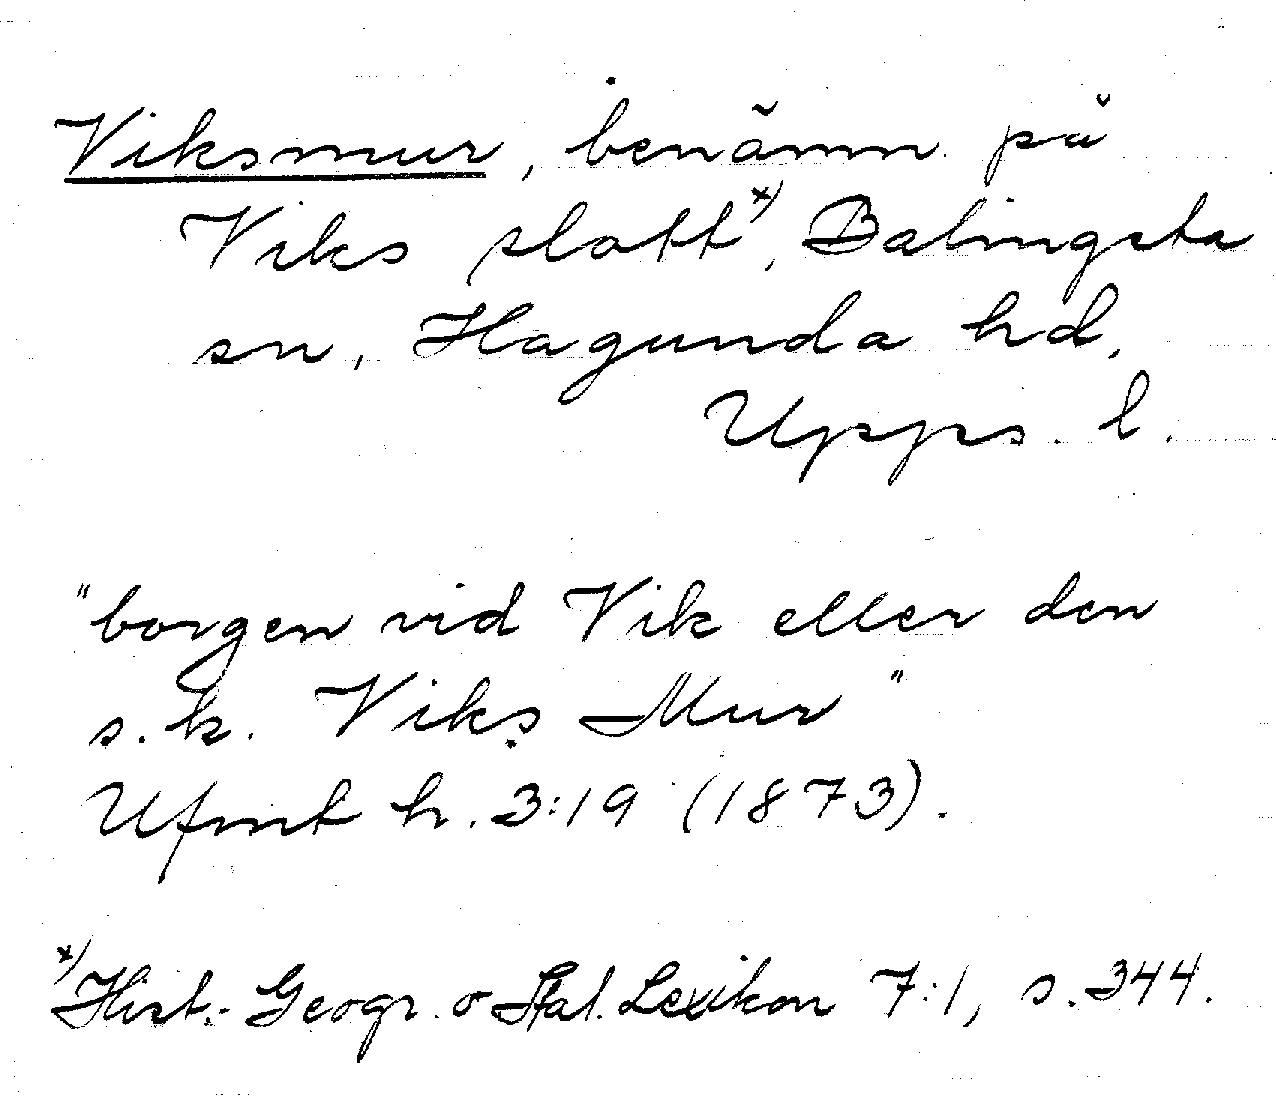 Viksmur, benämn på
Viks slott x), Balingsta
sn, Hagunda hd,
Upps. l.
"borgen vid Vik eller den
s.k. Viks Mur"
Ufmt h. 3:19 (1873).
x) Hist.-Geogr. o Stat. Lexikon 7:1, s. 344.